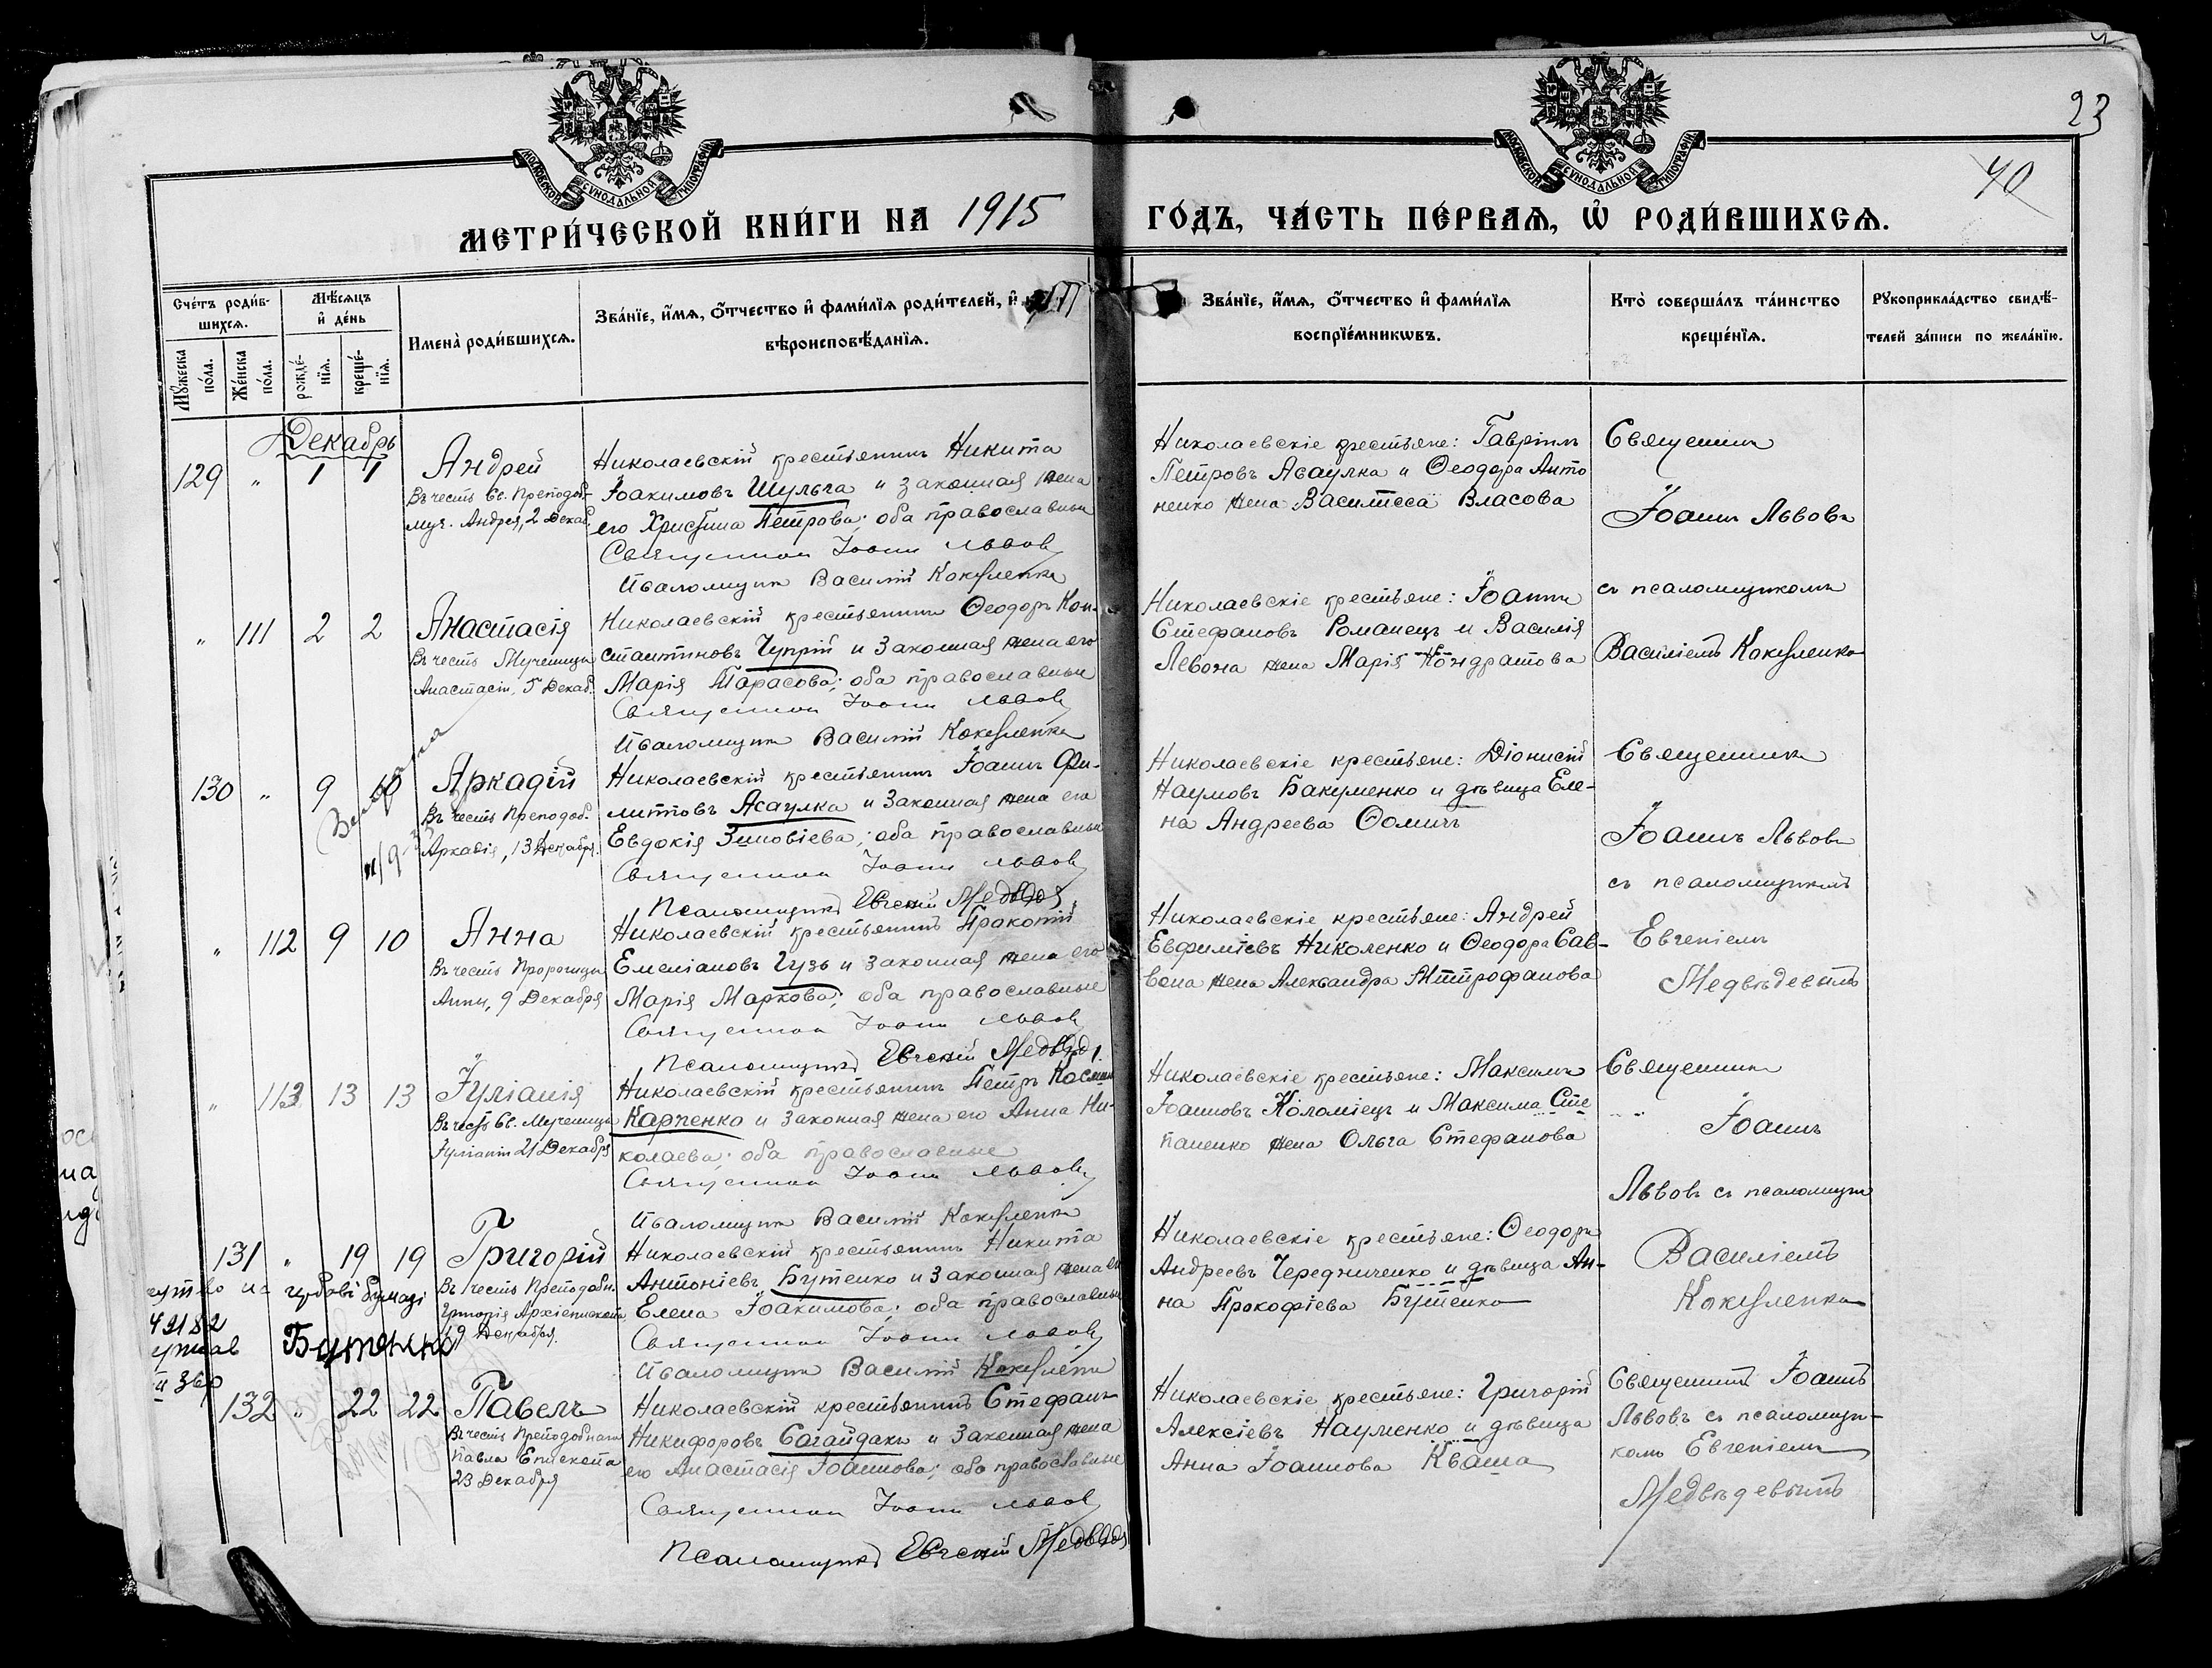 23
40
МОСКОВСКОЙ СѴНОДАЛЬНОЙ ТИПОГРАФІИ
МОСКОВСКОЙ СѴНОДАЛЬНОЙ ТИПОГРАФІИ
МЕТРИ́ЧЕСКОЙ КНИ́ГИ НА 1915 ГО́ДЪ, ЧА́СТЬ ПЕ́РВАѦ, Ѡ҆ РОДИ́ВШИХСѦ.
Сче́тъ роди́в-
шихсѧ.
Мꙋ́жеска
по́ла.
Же́нска
по́ла.
Мѣ́сѧцъ
и҆ де́нь
рожде́-
нїѧ.
креще́-
нїѧ.
Имена̀ роди́вшихсѧ.
Зва́нїе, и҆́мѧ, ѻ҆́тчество и҆ фами́лїѧ роди́телей, и҆
вѣроисповѣ́данїѧ.
Зва́нїе, и҆́мѧ, ѻ҆́тчество и҆ фами́лїѧ
воспрїе́мникѡвъ.
Кто̀ соверша́лъ та́инство
креще́нїѧ.
Рꙋкоприкла́дство свидѣ́-
телей за́писи по жела́нїю.
Декабрь
129 " 1 1
Андрей
Въ честь Св. Преподоб-
муч. Андрея, 2 Декаб.
Николаевскій крестьянинъ Никита
Іоакимовъ Шульга и законная жена
его Христина Петрова; оба православные
Священникъ Іоаннъ Львовъ
Псаломщикъ Василій
Николаевскіе крестьяне: Гавріилъ
Петровъ Асаулка и Ѳеодора Анто
ненко жена Василисса Власова
Священникъ
Іоаннъ Львовъ
" 111 2 2
Анастасія
Въ честь Мученицы
Анастасіи, 5 Декаб.
Николаевскій крестьянинъ Ѳеодоръ Кон-
стантиновъ Чуприй и законная жена его
Марія Тарасова; оба православные
Священникъ Іоаннъ Львовъ
Псаломщикъ Василій
Николаевскіе крестьяне: Іоаннъ
Стефановъ Романецъ и Василія
Левона жена Марія Кондратова
съ псаломщикомъ
Василіемъ
130 " 9 10
Аркадій
Въ честь Преподоб.
Аркадія, 13 Декабря.
Николаевскій крестьянинъ Іоаннъ Фи-
липповъ Асаулка и законная жена его
Евдокія Зиновіева; оба православные
Священникъ Іоаннъ Львовъ
Псаломщикъ Евгеній Медвѣдевъ
Николаевскіе крестьяне: Діонисій
Наумовъ Бакуменко и дѣвица Еле-
на Андреева Ѳомичъ
Священникъ
Іоаннъ Львовъ
съ псаломщикомъ
" 112 9 10
Анна
Въ честь Пророчицы
Анны, 9 Декабря
Николаевскій крестьянинъ Прокопій
Емеліановъ Гузь и законная жена его
Марія Маркова; оба православные
Священникъ Іоаннъ Львовъ
Псаломщикъ Евгеній Медвѣдевъ
Николаевскіе крестьяне: Андрей
Евфиміевъ Николенко и Ѳеодора Сав-
вона жена Александра Митрофанова
Евгеніемъ
Медвѣдевымъ
" 113 13 13
Іуліанія
Въ честь Св. Мученицы
Іуліаніи 21 Декабря
Николаевскій крестьянинъ Петръ Косминъ
Карпенко и законная жена его Анна Ни-
колаева; оба православные
Священникъ Іоаннъ Львовъ
Псаломщикъ Василій
Николаевскіе крестьяне: Максимъ
Іоанновъ Коломіецъ и Максима Сте
паненко жена Ольга Стефанова
Священникъ
Іоаннъ
Львовъ съ псаломщик
131 " 19 19
Григорій
Въ честь Преподобн.
Григорія Архіепископа
19 Декабря.
Бутенко
Николаевскій крестьянинъ Никита
Антоніевъ Бутенко и законная жена его
Елена Іоакимова; оба православные
Священникъ Іоаннъ Львовъ
Псаломщикъ Василій
Николаевскіе крестьяне: Ѳеодоръ
Андреевъ Чередниченко и дѣвица Ан-
на Прокофіева Бутенко
Василіемъ
132 " 22 22
Павелъ
Въ честь Преподобнаго
Павла Епископа
23 Декабря
Николаевскій крестьянинъ Стефанъ
Никифоровъ Сагайдакъ и законная жена
его Анастасія Іоаннова; оба православные
Священникъ Іоаннъ Львовъ
Псаломщикъ Евгеній Медвѣдевъ
Николаевскіе крестьяне: Григорій
Алексіевъ Науменко и дѣвица
Анна Іоаннова Кваша
Священникъ Іоаннъ
Львовъ съ псаломщи-
комъ Евгеніемъ
Медвѣдевымъ